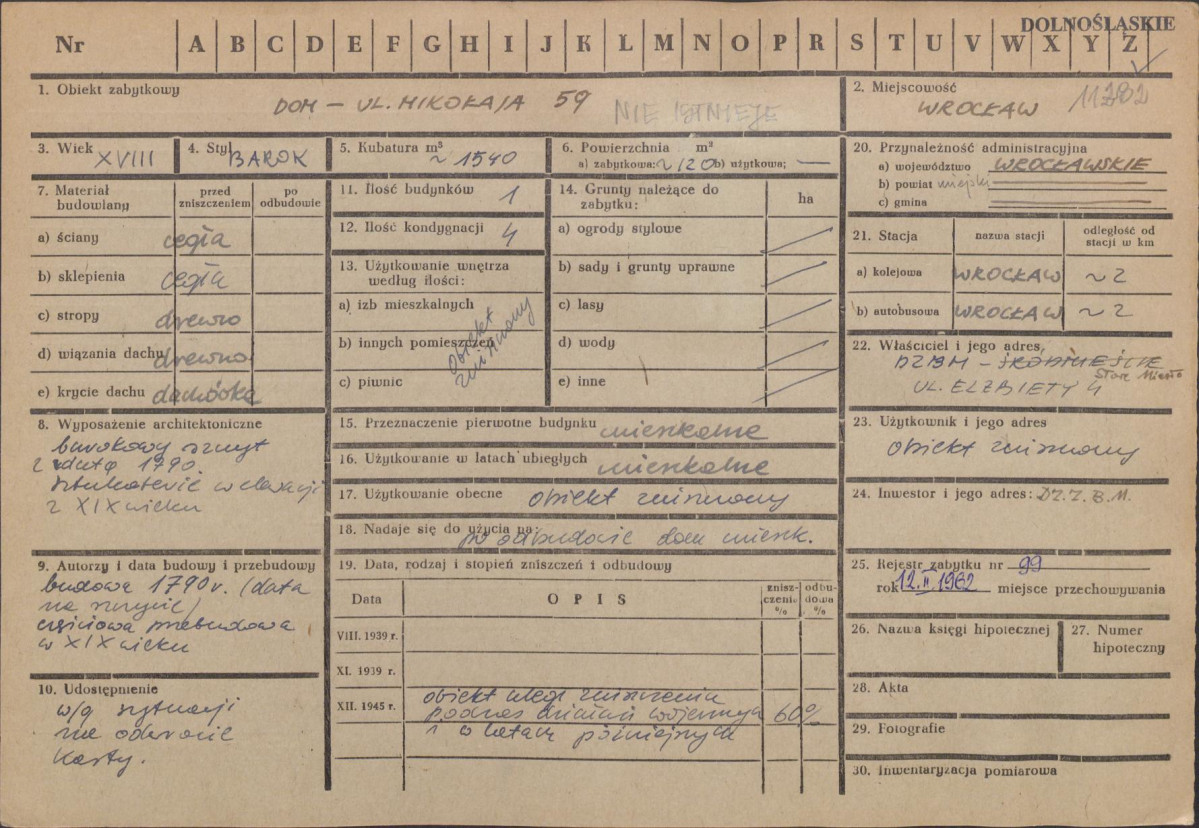 DOLNOŚLĄSKIE
Nr A B C D E F G H I J K Ł M N O P R S T U V W X Y Z
1. Obiekt zabytkowy
DOM – UL. MIKOŁAJA 59 NIE ISTNIEJE
2. Miejscowość
WROCŁAW
3. Wiek XVIII
4. Styl BAROK
5. Kubatura m³
~ 1540
6. Powierzchnia m²
a) zabytkowa: ~120 b) użytkowa; —
7. Materiał budowlany
przed zniszczeniem
po odbudowie
a) ściany cegła
b) sklepienia cegła
c) stropy drewno
d) wiązania dachu drewno
e) krycie dachu dachówka
8. Wyposażenie architektoniczne
barokowy szczyt
z datą 1790.
sztukaterie w elewacji
z XIX wieku
9. Autorzy i data budowy i przebudowy
budowa 1790 r. (data
na szczycie)
częściowa przebudowa
w XIX wieku
10. Udostępnienie
w/g sytuacji
na odwrocie
karty.
11. Ilość budynków 1
12. Ilość kondygnacji 4
13. Użytkowanie wnętrza
według ilości:
a) izb mieszkalnych
b) innych pomieszczeń
c) piwnic
obiekt
zniszczony
14. Grunty należące do
zabytku:
ha
a) ogrody stylowe
b) sady i grunty uprawne
c) lasy
d) wody
e) inne
15. Przeznaczenie pierwotne budynku mieszkalne
16. Użytkowanie w latach ubiegłych mieszkalne
17. Użytkowanie obecne obiekt zniszczony
18. Nadaje się do użycia na: po odbudowie dom mieszk.
19. Data, rodzaj i stopień zniszczeń i odbudowy
Data
OPIS
zniszczenie %
odbudowa %
VIII. 1939 r.
XI. 1939 r.
XII. 1945 r.
obiekt uległ zniszczeniu
podczas działań wojennych 60%
i w latach późniejszych
20. Przynależność administracyjna
a) województwo WROCŁAWSKIE
b) powiat miejski
c) gmina
21. Stacja
nazwa stacji
odległość od
stacji w km
a) kolejowa WROCŁAW ~2
b) autobusowa WROCŁAW ~2
22. Właściciel i jego adres
DZBM – ŚRÓDMIEŚCIE
Stare Miasto
UL. ELŻBIETY 4
23. Użytkownik i jego adres
obiekt zniszczony
24. Inwestor i jego adres: DZ.Z.B.M.
25. Rejestr zabytku nr 99
rok 12.II.1962 miejsce przechowywania
26. Nazwa księgi hipotecznej
27. Numer
hipoteczny
28. Akta
29. Fotografie
30. Inwentaryzacja pomiarowa